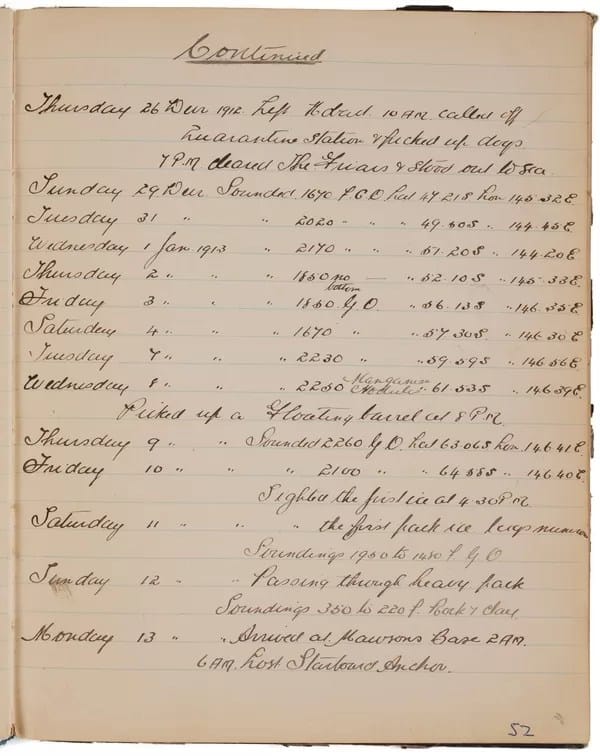 Continued
Thursday 26 Decr 1912. Left Hobart. 10 AM. called off
Quarantine Station & picked up dogs
7 P.M cleared The Friars & stood out to Sea
Sunday 29 Decr Sounded 1670 f. G.O lat 47.21S lon 145.32E
Tuesday 31 " " 2020 " " " 49.50S " 144.45E
Wednesday 1 Jan. 1913 " 2170 " " " 51.20S " 144.20E
Thursday 2 " " " 1850 no bottom — " 52.10S " 145.33E
Friday 3 " " " 1850 G.O. " 56.13S " 146.35E
Saturday 4 " " " 1670 " " 57.30S " 146.30E
Tuesday 7 " " " 2230 " " 59.59S " 146.56E
Wednesday 8 " " " 2250 Manganese " 61.53S " 146.39E
Picked up a Floating barrel at 8 P.M.
Thursday 9 " " Sounded 2260 G.O. lat 63.06S lon 146.41E
Friday 10 " " " 2100 " " 64.58S " 146.40E
Sighted the first ice at 4.30 P.M
Saturday 11 " " " the first pack ice
Soundings 1950 to 1450 f. G.O
Sunday 12 " " Passing through heavy pack
Soundings 350 to 220 f. Rock & clay
Monday 13 " " Arrived at Mawsons Base 2 AM.
6 AM. Lost Starboard Anchor.
52